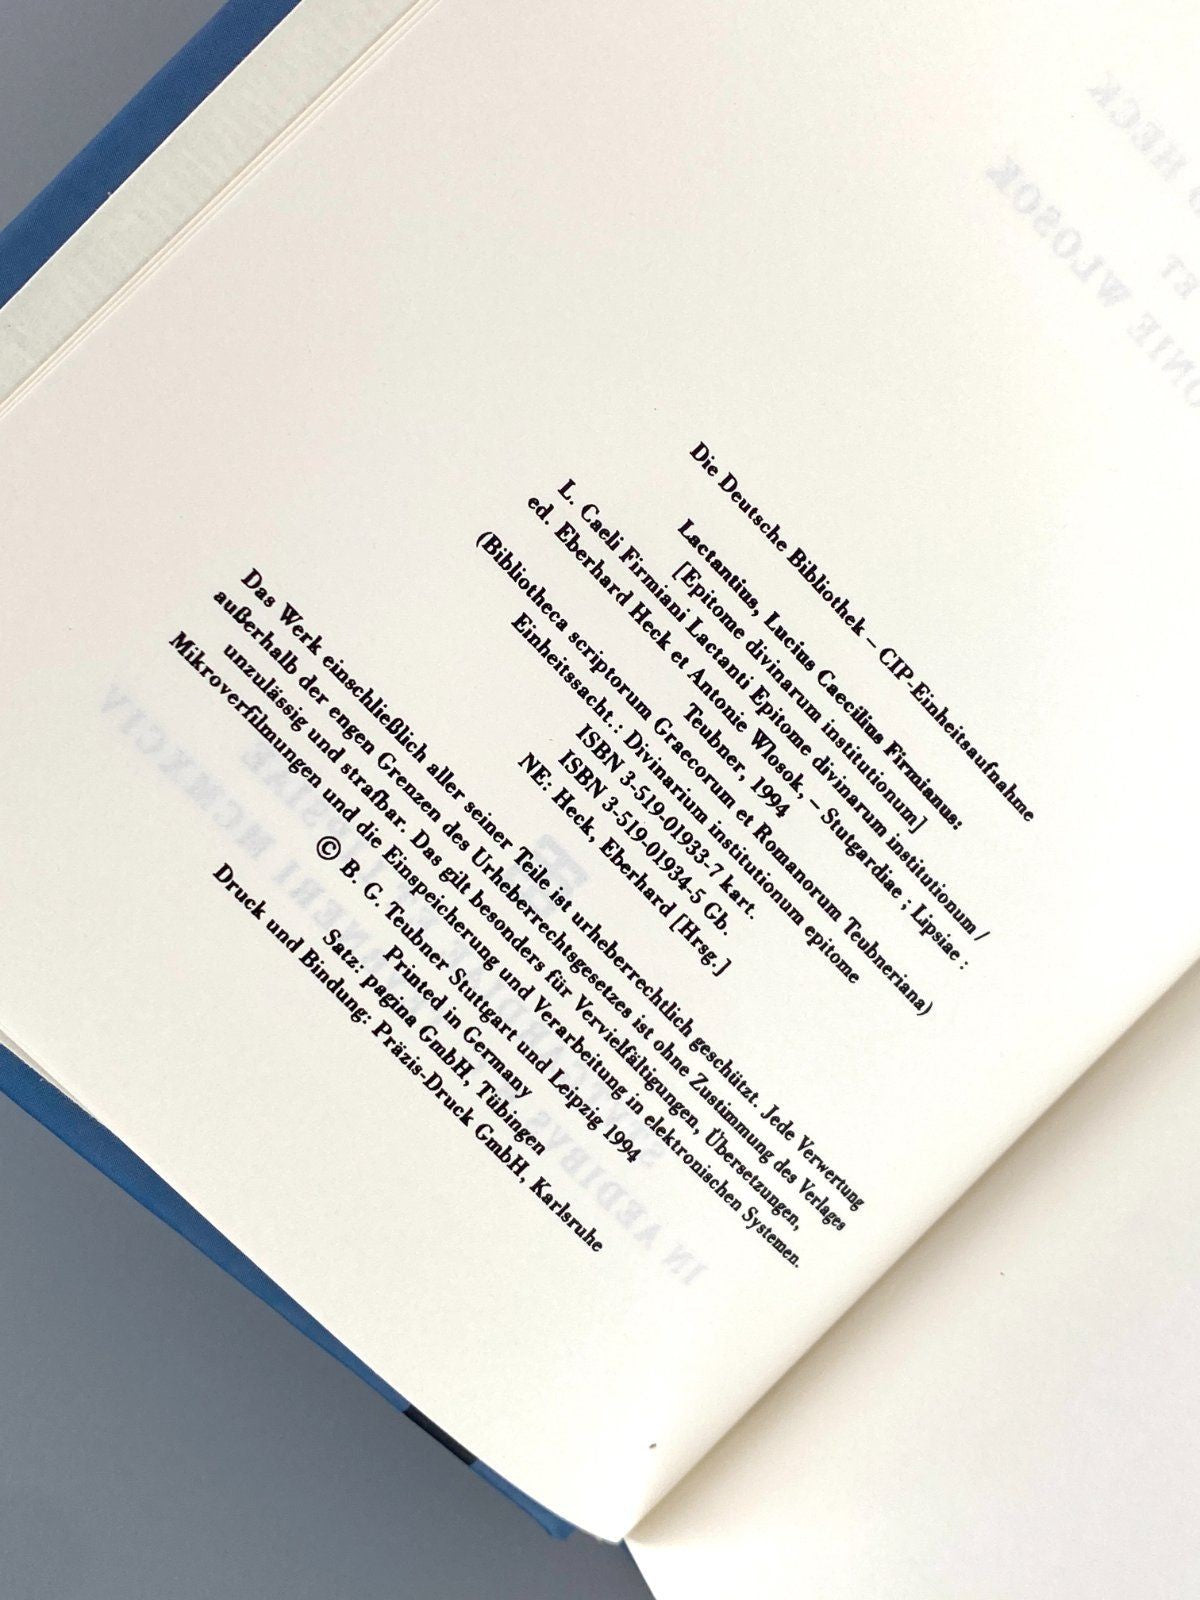 Die Deutsche Bibliothek – CIP-Einheitsaufnahme
Lactantius, Lucius Caecilius Firmianus:
[Epitome divinarum institutionum]
L. Caeli Firmiani Lactanti Epitome divinarum institutionum /
ed. Eberhard Heck et Antonie Wlosok, – Stutgardiae ; Lipsiae :
Teubner, 1994
(Bibliotheca scriptorum Graecorum et Romanorum Teubneriana)
Einheitssacht.: Divinarium institutionum epitome
ISBN 3-519-01933-7 kart.
ISBN 3-519-01934-5 Gb.
NE: Heck, Eberhard [Hrsg.]
Das Werk einschließlich aller seiner Teile ist urheberrechtlich geschützt. Jede Verwertung
außerhalb der engen Grenzen des Urheberrechtsgesetzes ist ohne Zustimmung des Verlages
unzulässig und strafbar. Das gilt besonders für Vervielfältigungen, Übersetzungen,
Mikroverfilmungen und die Einspeicherung und Verarbeitung in elektronischen Systemen.
© B. G. Teubner Stuttgart und Leipzig 1994
Printed in Germany
Satz: pagina GmbH, Tübingen
Druck und Bindung: Präzis-Druck GmbH, Karlsruhe